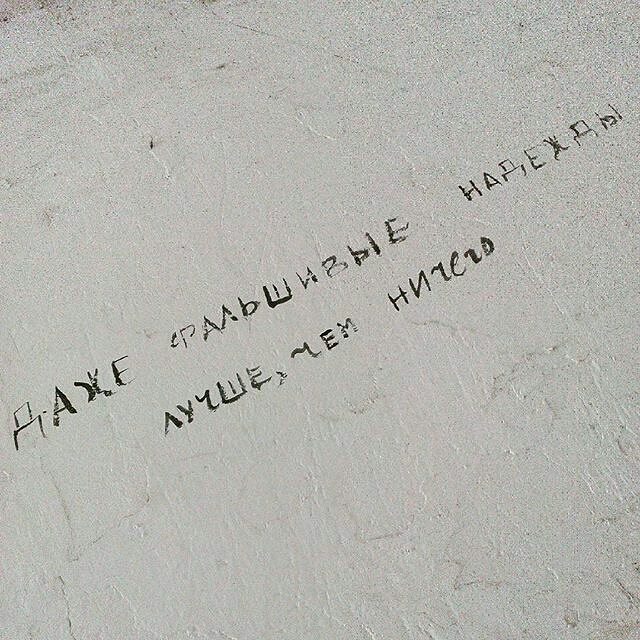 ДАЖЕ ФАЛЬШИВЫЕ НАДЕЖДЫ
ЛУЧШЕ, ЧЕМ НИЧЕГО